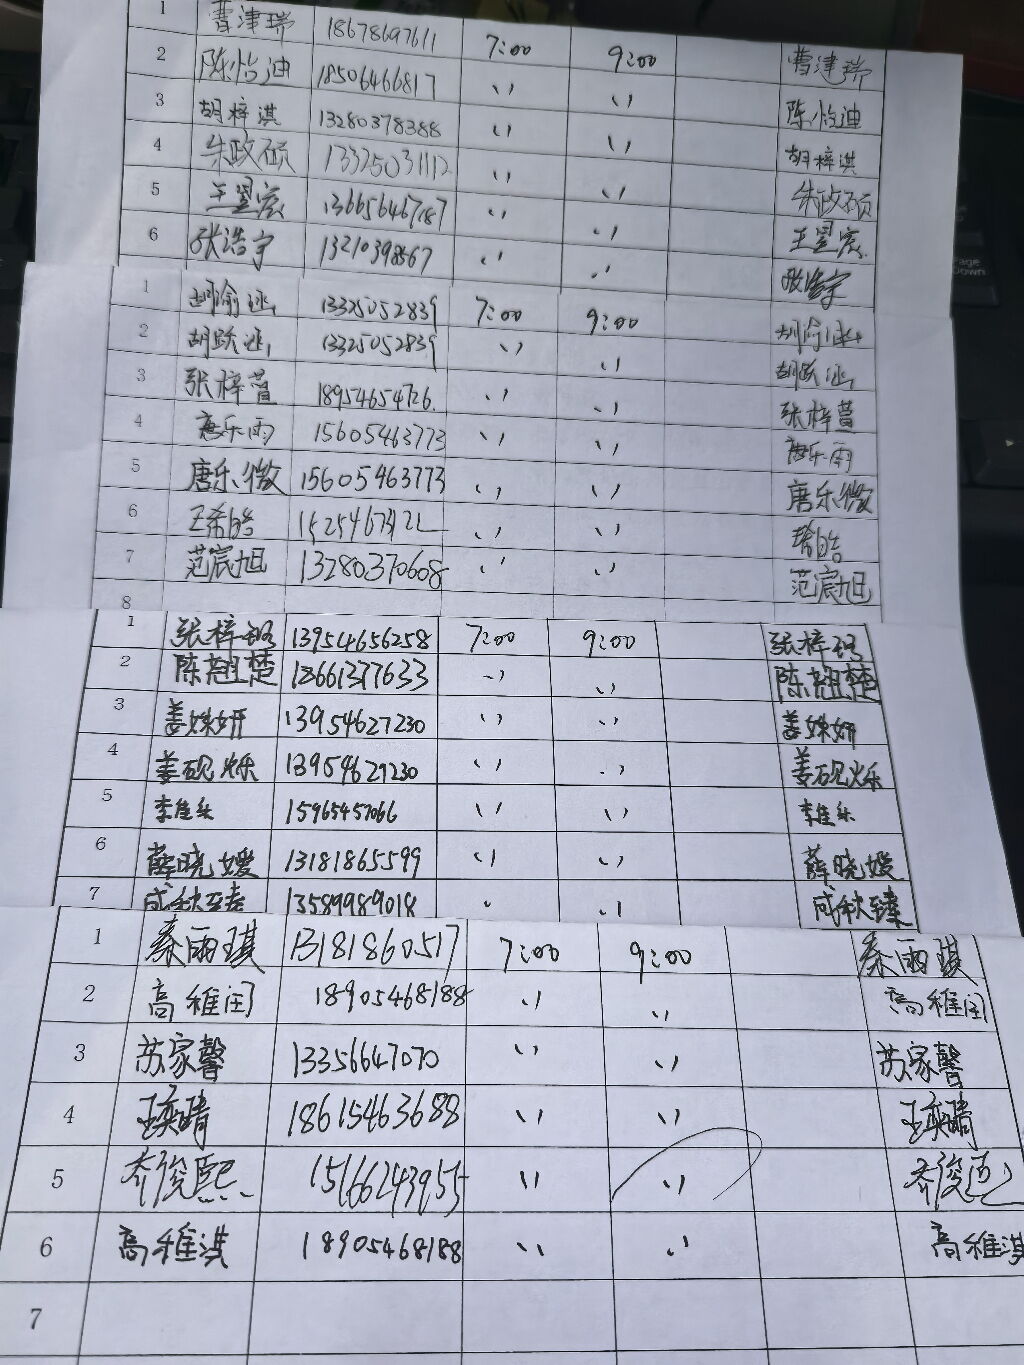 1 曹津瑞 18678697611 7:00 9:00 曹津瑞
2 陈怡迪 18506466817 〃 〃 陈怡迪
3 胡梓淇 13280378388 〃 〃 胡梓淇
4 朱政硕 13325031112 〃 〃 朱政硕
5 王昱宸 13665646787 〃 〃 王昱宸
6 张浩宇 13210398567 〃 〃 张浩宇
1 胡愉涵 13325052839 7:00 9:00 胡愉涵
2 胡跃涵 13325052839 〃 〃 胡跃涵
3 张梓萱 18954654726 〃 〃 张梓萱
4 唐乐雨 15605463773 〃 〃 唐乐雨
5 唐乐微 15605463773 〃 〃 唐乐微
6 王希皓 〃 〃 希皓
7 范宸旭 13280370608 〃 〃 范宸旭
8
1 张梓铭 13954656258 7:00 9:00 张梓铭
2 陈翘楚 13661377633 〃 〃 陈翘楚
3 姜姝妍 13954627230 〃 〃 姜姝妍
4 姜砚烁 13954627230 〃 〃 姜砚烁
5 李佳乐 15965457066 〃 〃 李佳乐
6 薛晓嫒 13181865599 〃 〃 薛晓嫒
7 成秋臻 13589989018 〃 〃 成秋臻
1 秦雨琪 13181860517 7:00 9:00 秦雨琪
2 高稚闰 18905468188 〃 〃 高稚闰
3 苏家馨 13356647070 〃 〃 苏家馨
4 王奕晴 18615463688 〃 〃 王奕晴
5 乔俊熙 15166243955 〃 〃 乔俊熙
6 高稚淇 18905468188 〃 〃 高稚淇
7